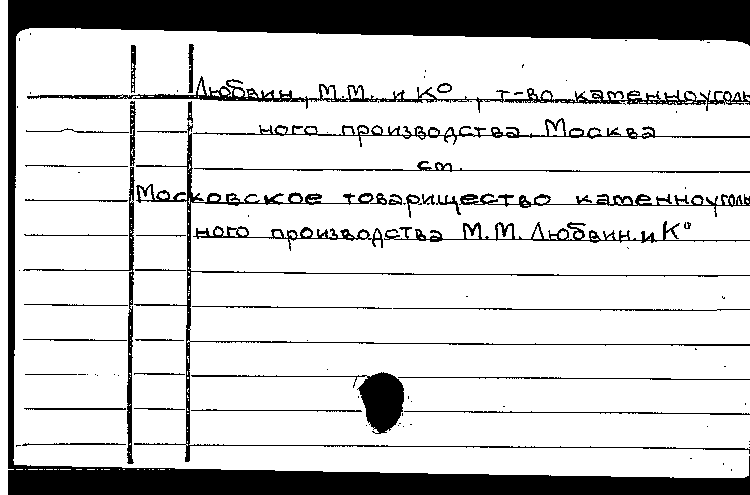 Любвин, М.М. и К⁰., т-во каменноуголь
ного производства. Москва
ст.
Московское товарищество каменноуголь
ного производства М.М. Любвин и К⁰